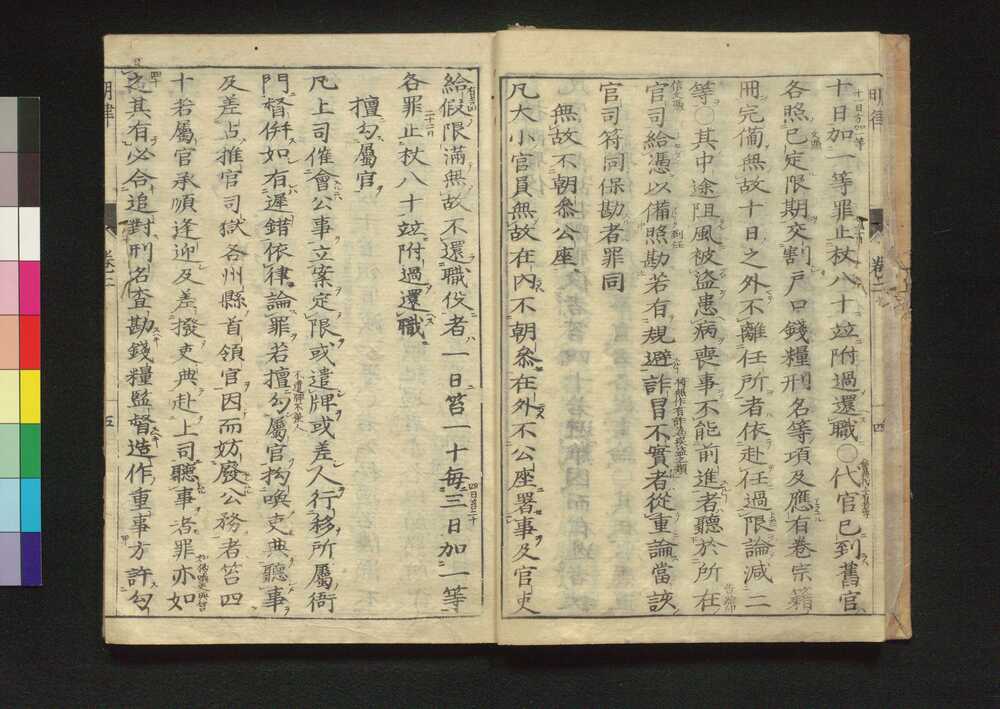 十日加一等罪止杖八十竝附過還職〇代官已到舊官
各照已定限期交割戸口錢糧刑名等項及應有卷宗籍
冊完備無故十日之外不離任所者依赴任過限論減二
等〇其中途阻風被盗患病喪事不能前進者聽於所在
官司給憑以備照勘若有規避詐冒不實者從重論當該
官司符同保勘者罪同
無故不朝參公座
凡大小官員無故在内不朝參在外不公座署事及官吏
給假限滿無故不還職役者一日笞一十毎三日加一等
各罪止杖八十竝附過還職
擅勾屬官
凡上司催會公事立案定限或遣牌或差人行移所屬衙
門督併如有遲錯依律論罪若擅勾屬官拘喚吏典聽事
及差占推官司獄各州縣首領官因而妨廢公務者笞四
十若屬官承順逢迎及差撥吏典赴上司聽事者罪亦如
之其有必合追對刑名査勘錢糧監督造作重事方許勾
明律
卷二
四
明律
卷二
五